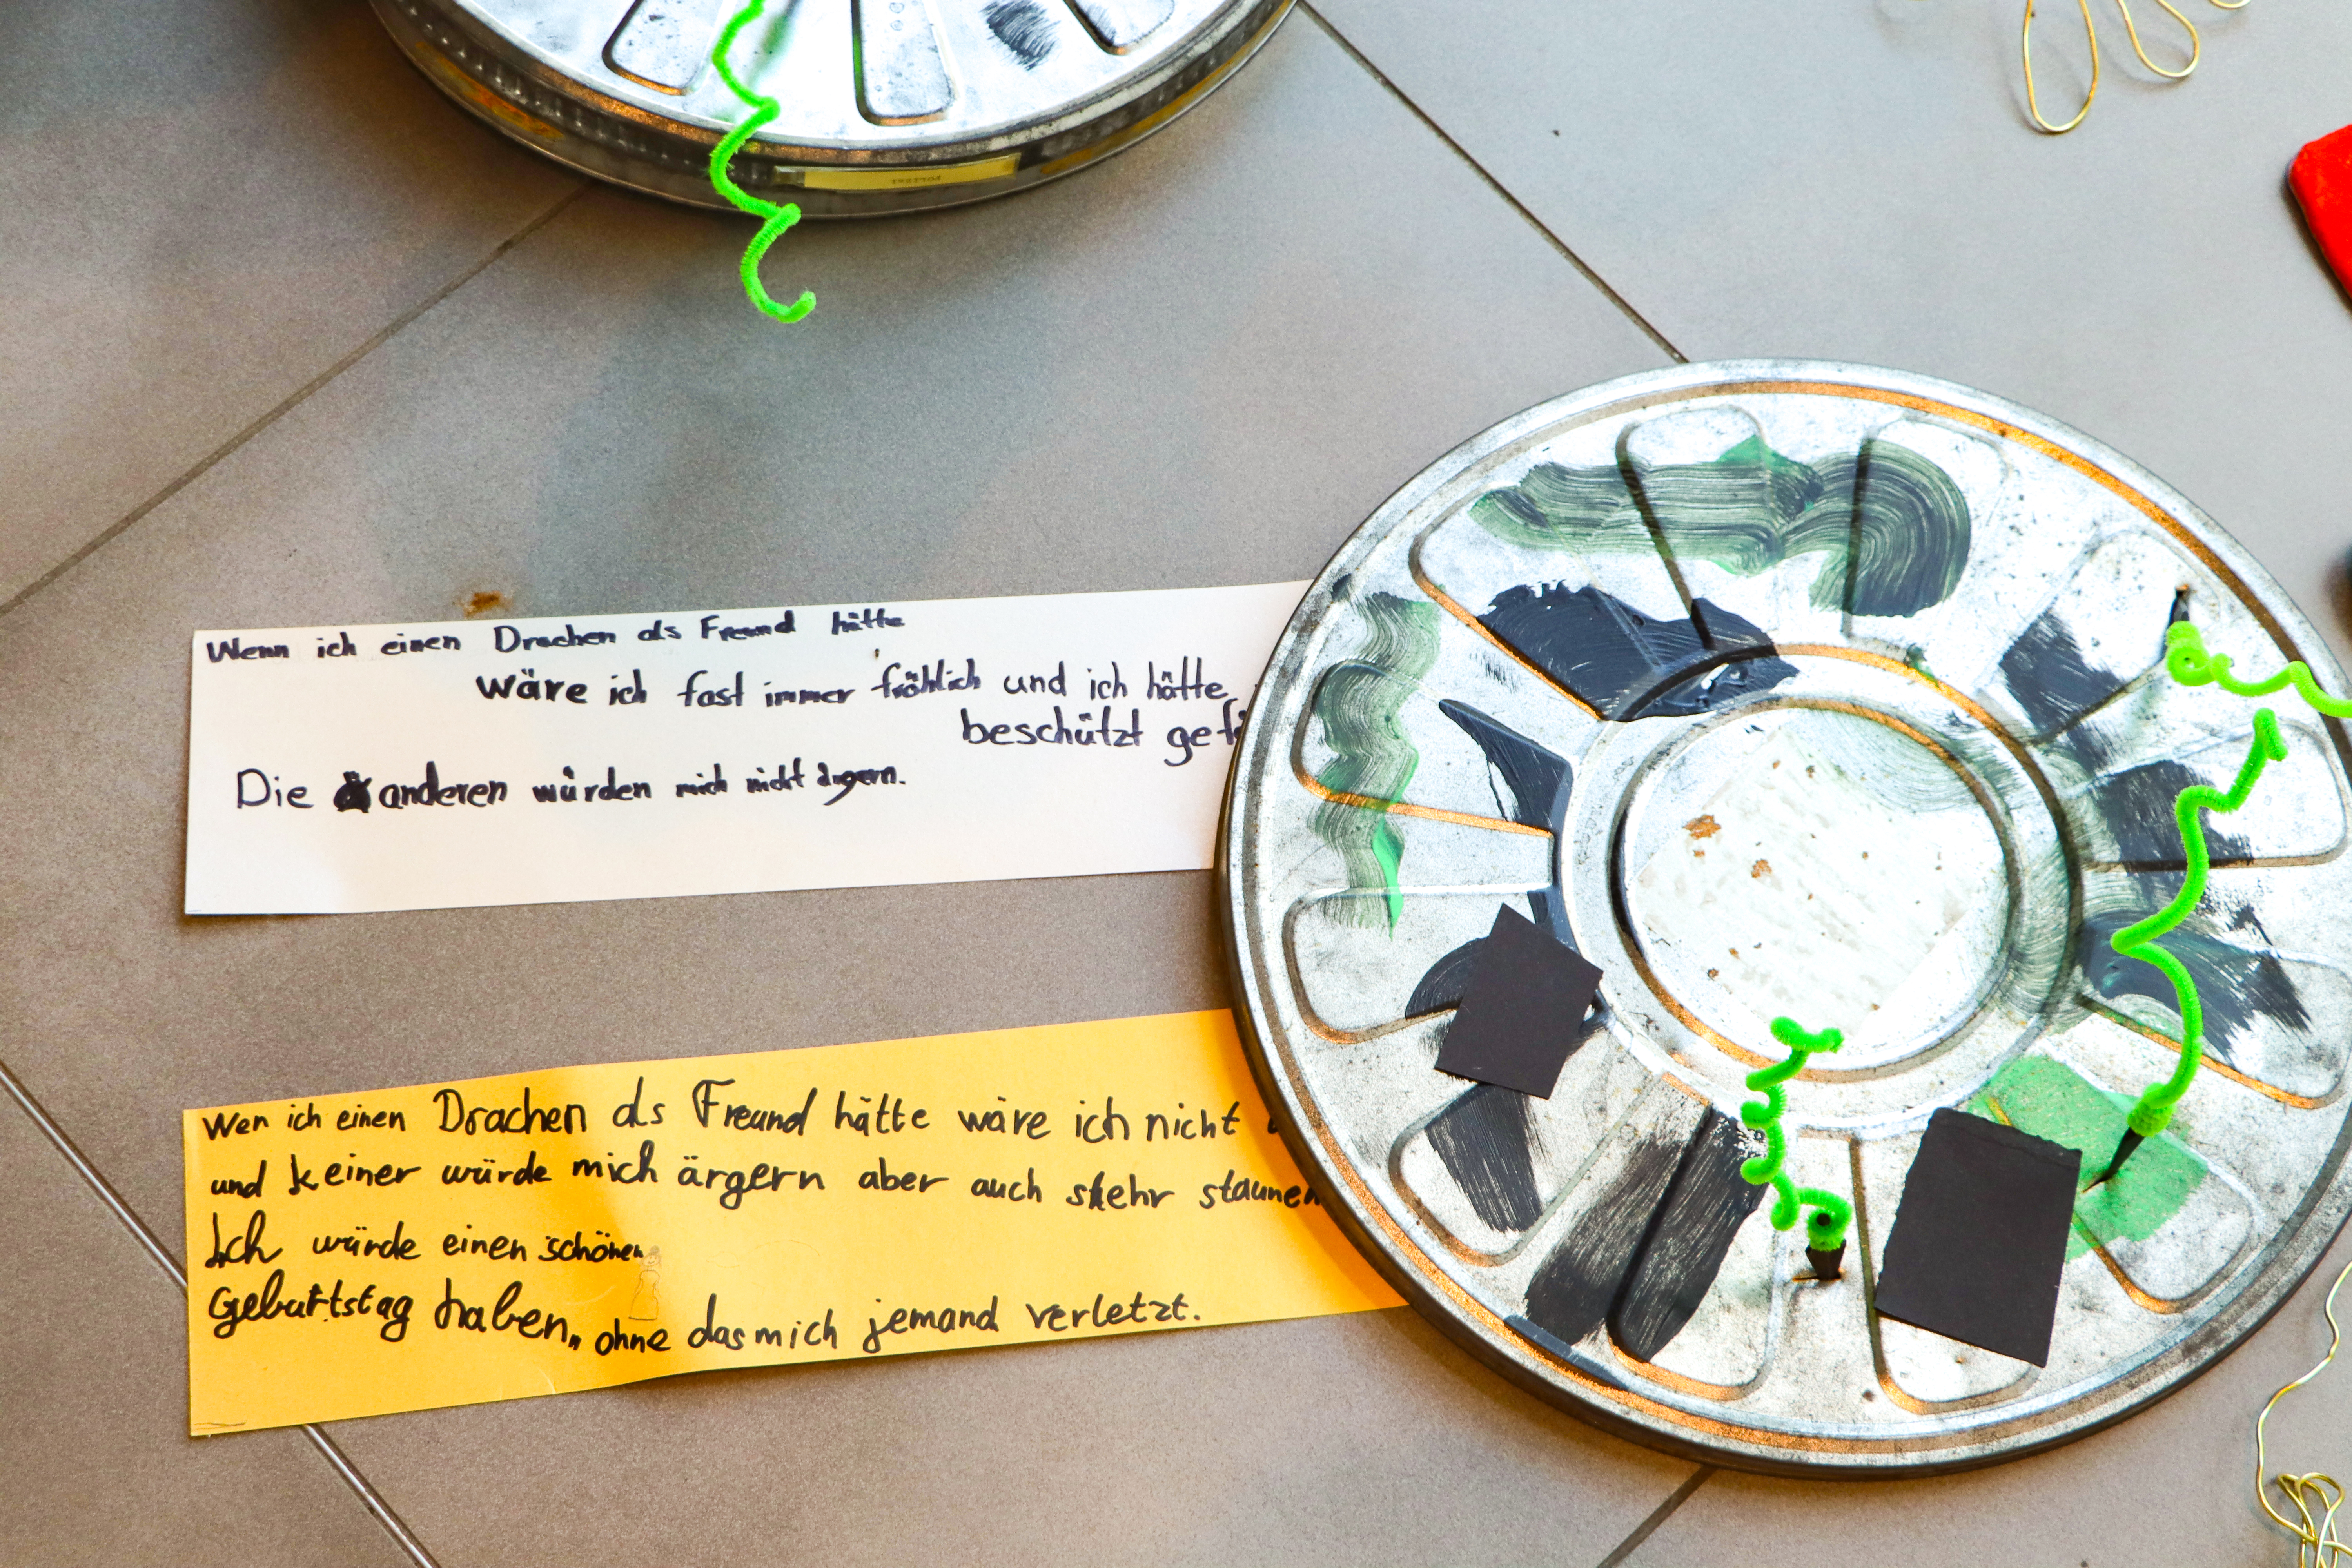 Wenn ich einen Drachen als Freund hätte
wäre ich fast immer fröhlich und ich hätte
beschützt gef
Die anderen würden mich nicht ärgern.
Wen ich einen Drachen als Freund hätte wäre ich nicht
und keiner würde mich ärgern aber auch skehr staunen
Ich würde einen schönen
Geburtstag haben,, ohne das mich jemand verletzt.